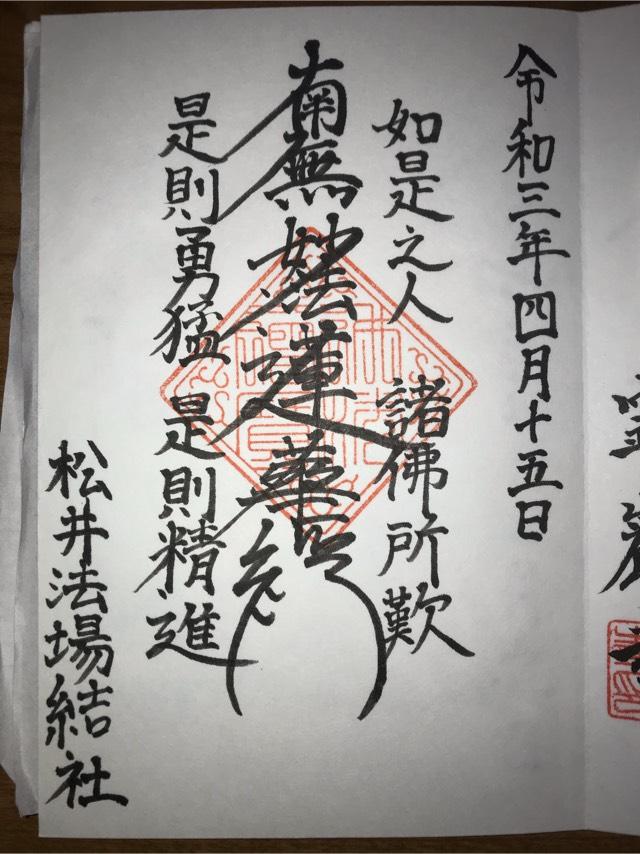 令和三年四月十五日
如是之人 諸佛所歎
南無妙法蓮華経
是則勇猛 是則精進
松井法場結社